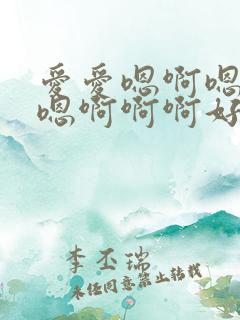 爱爱嗯啊嗯
嗯啊啊啊好
李丕瑞
未经同意禁止转载